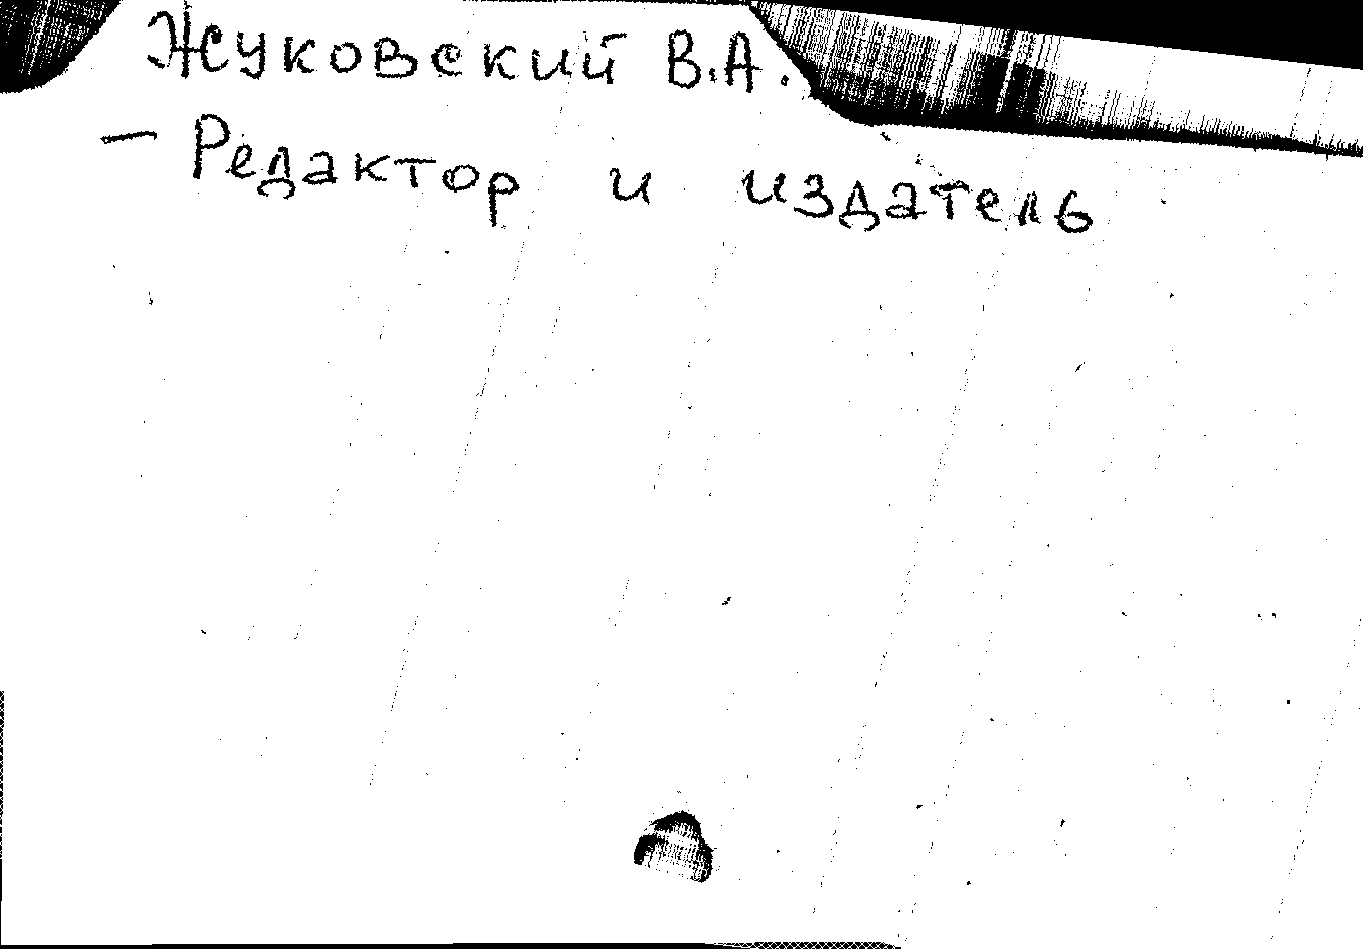 Жуковский В.А.
— Редактор и издатель